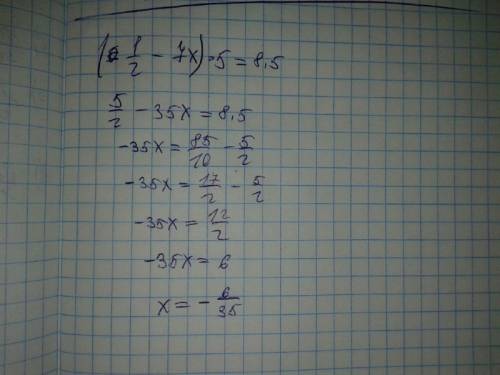 (1/2 - 7x)·5 = 8,5
5/2 - 35x = 8,5
-35x = 85/10 - 5/2
-35x = 17/2 - 5/2
-35x = 12/2
-35x = 6
x = - 6/35